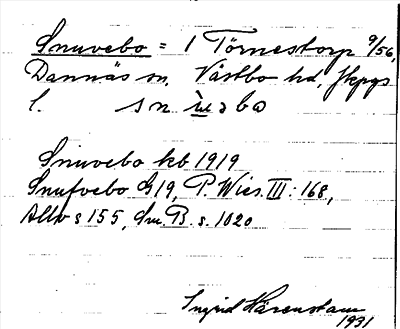 Snuvebo = 1 Törnestorp 9/56,
Dannäs sn, Västbo hd, Jkpgs
l. snùəbo
Snuvebo kb 1919
Snufvebo G19, P. Wies. III: 168,
Allv s 155, Sm. B. s. 1020
Ingrid Härenstam
1931